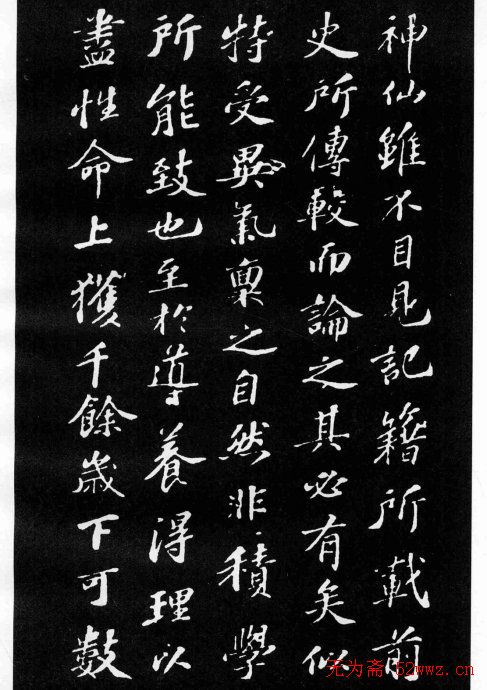 神仙雖不目見記籍所載前
史所傳較而論之其必有矣似
特受異氣稟之自然非積學
所能致也至於導養得理以
盡性命上獲千餘歲下可數
无为斋 52wwz.cn